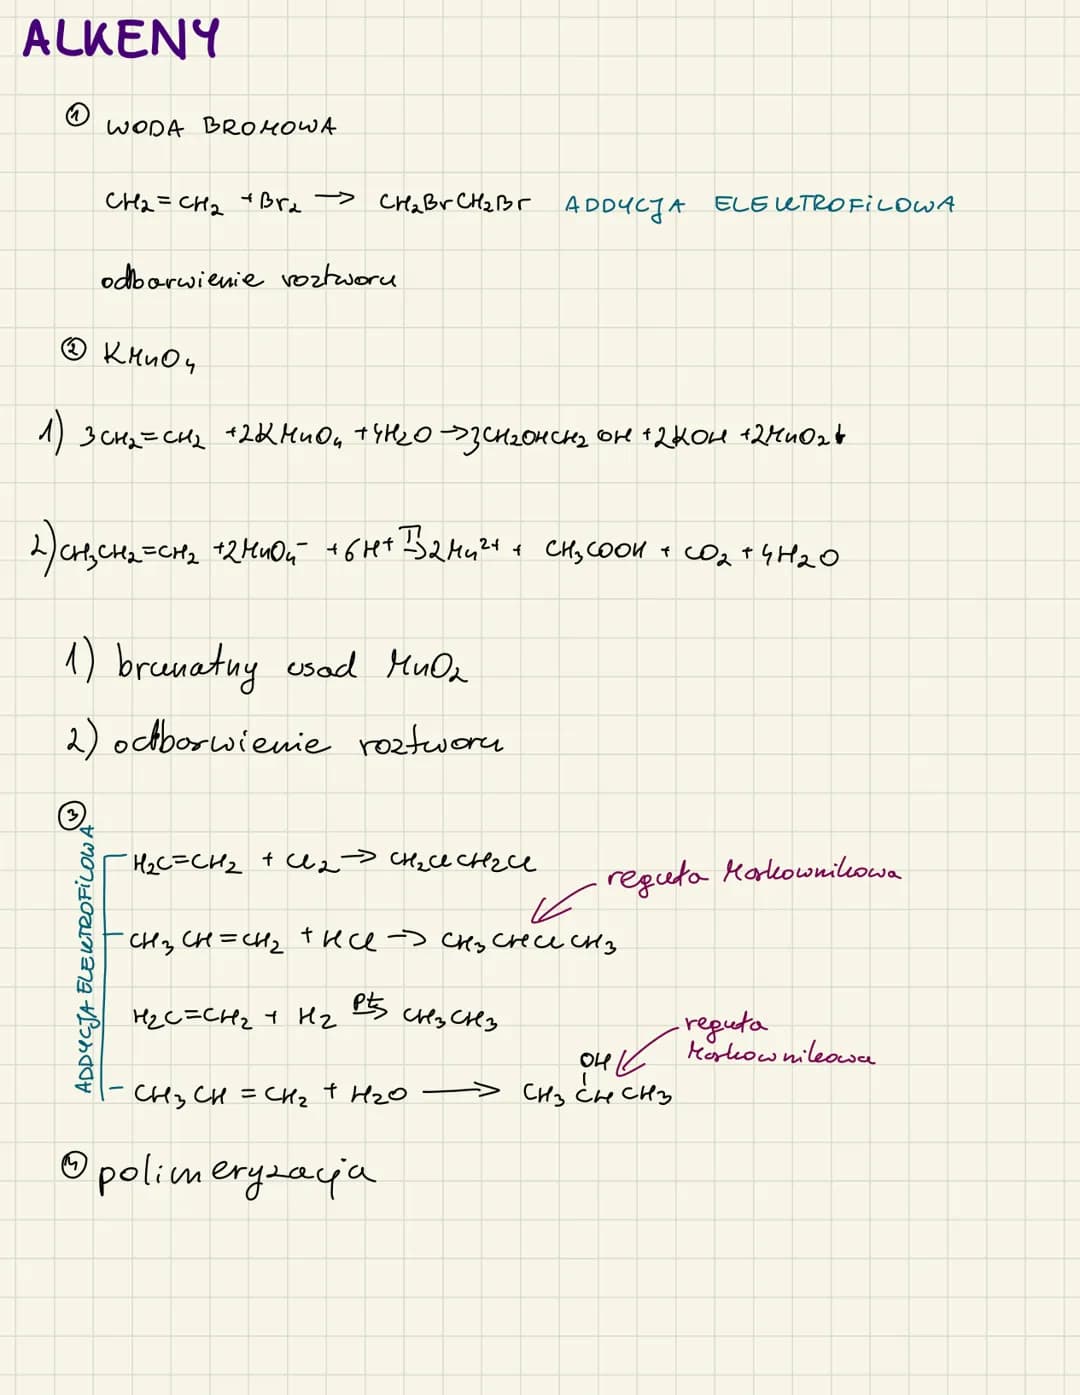 ALKENY
① WODA BROMOWA
CH₂=CH₂ +Br₂ → CH₂BrCH₂Br ADDYCJA ELEKTROFILOWA
odbarwienie roztworu
② KMnO₄
1) 3CH₂=CH₂ +2KMnO₄ +4H₂O →3CH₂OHCH₂OH +2KOH +2MnO₂↓
2) CH₃CH₂=CH₂ +2MnO₄⁻ +6H⁺ T→ 2Mn²⁺ + CH₃COOH + CO₂ + 4H₂O
1) brunatny osad MnO₂
2) odbarwienie roztworu
③
ADDYCJA ELEKTROFILOWA
H₂C=CH₂ + Cl₂ → CH₂ClCH₂Cl
reguła Markownikowa
CH₃CH=CH₂ + HCl → CH₃CHClCH₃
H₂C=CH₂ + H₂ Pt→ CH₃CH₃
reguła
Markownikowa
OH
CH₃CH=CH₂ + H₂O → CH₃CHCH₃
④ polimeryzacja